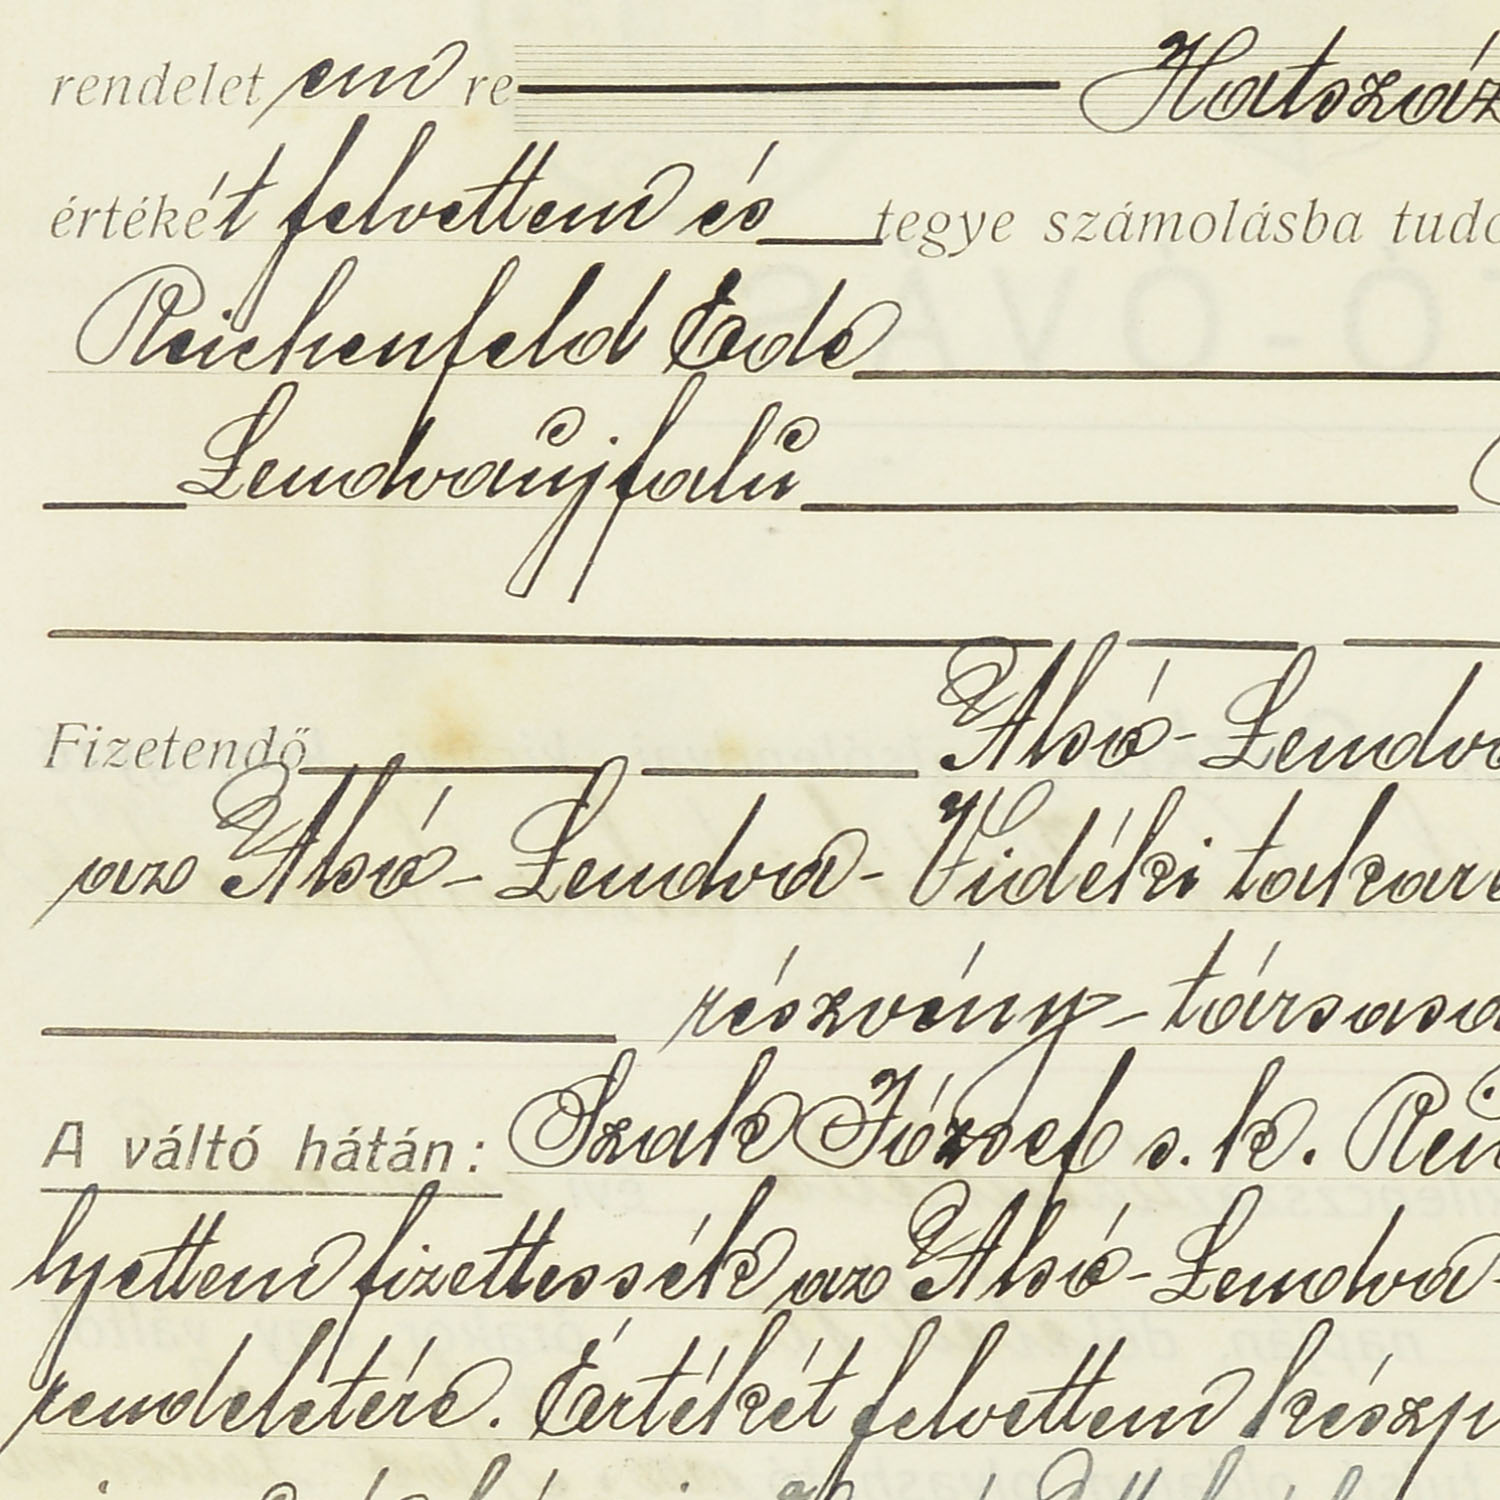 rendelet em re Hatszáz
értékét felvettem és tegye számolásba
Reichenfeld Ede
Lendvaujfalu
Fizetendő Alsó-Lendva
az Alsó-Lendva-Vidéki
részvény-társaság
A váltó hátán: Szak József s. k.
lyettem fizettessék az Alsó-Lendva-
rendeletére. Értékét felvettem